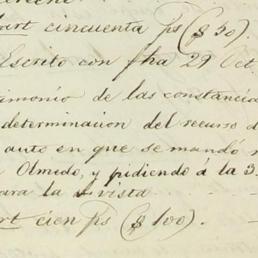 art cincuenta ps ($50).
Escrito con fha 29 Oct.
imonio de las constancia
determinacion del recurso d
auto en que se mandó
Olmedo, y pidiendo á la 3.
para la vista
art cien ps ($100).